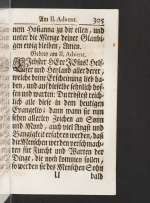 Am II. Advent. 305
nem Hosianna zu dir eilen, und
unter die Menge deiner Gläubi-
gen ewig bleiben, Amen.
Gebete am II. Advent.
Liebster HErr JEsus! Hel-
fer und Heyland aller derer,
welche deine Erscheinung lieb ha-
ben, und auf dieselbe sehnlich hof-
fen und warten: Du tröstest reich-
lich alle diese in dem heutigen
Evangelio; dann wann sie schon
allerley Zeichen an Sonn
und Mond, auch viel Angst und
Bangigkeit erfahren werden, das
die Menschen werden verschmach-
ten für Furcht und Warten der
Dinge, die noch kommen sollen,
so werden sie des Menschen Sohn
U bald